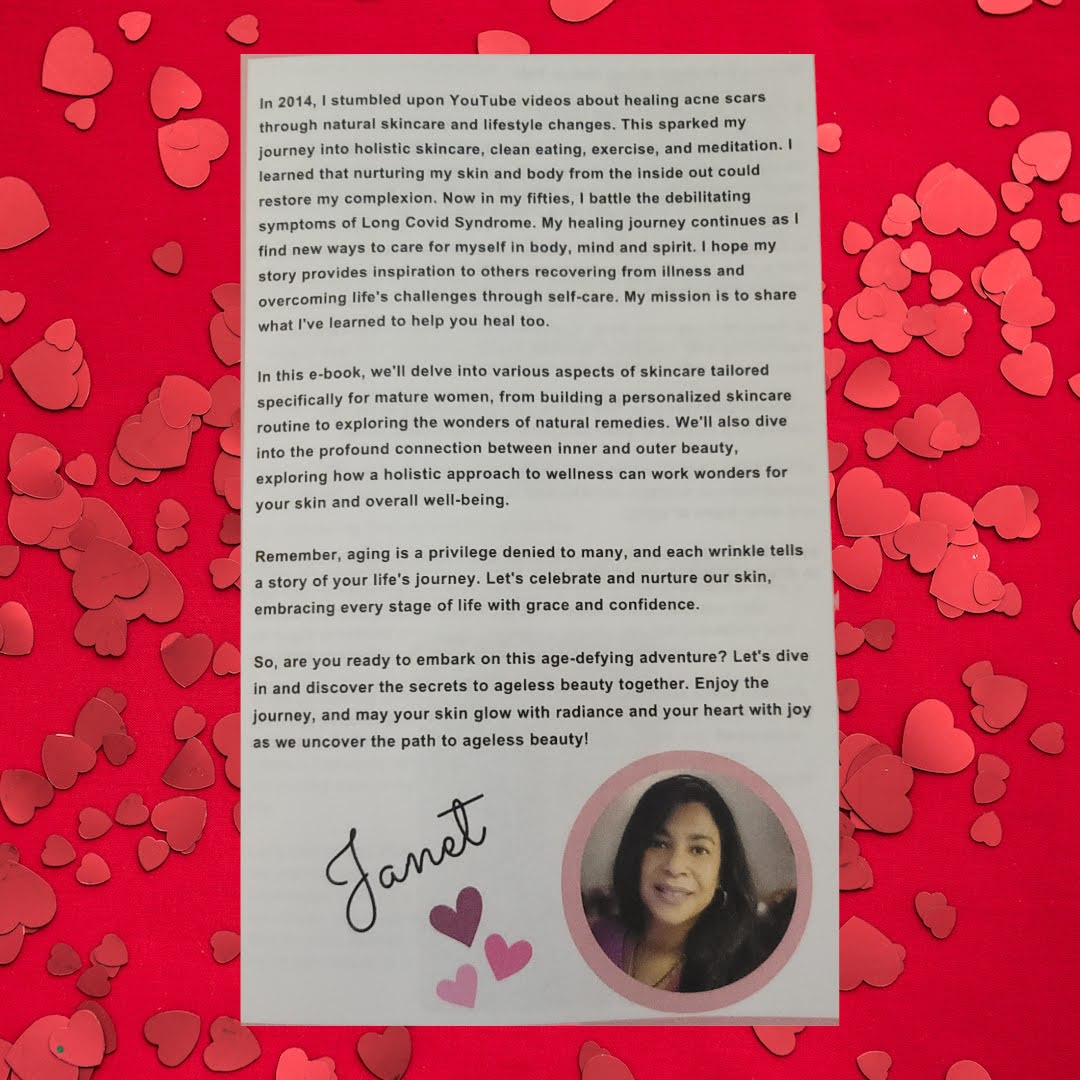 In 2014, I stumbled upon YouTube videos about healing acne scars
through natural skincare and lifestyle changes. This sparked my
journey into holistic skincare, clean eating, exercise, and meditation. I
learned that nurturing my skin and body from the inside out could
restore my complexion. Now in my fifties, I battle the debilitating
symptoms of Long Covid Syndrome. My healing journey continues as I
find new ways to care for myself in body, mind and spirit. I hope my
story provides inspiration to others recovering from illness and
overcoming life's challenges through self-care. My mission is to share
what I've learned to help you heal too.
In this e-book, we'll delve into various aspects of skincare tailored
specifically for mature women, from building a personalized skincare
routine to exploring the wonders of natural remedies. We'll also dive
into the profound connection between inner and outer beauty,
exploring how a holistic approach to wellness can work wonders for
your skin and overall well-being.
Remember, aging is a privilege denied to many, and each wrinkle tells
a story of your life's journey. Let's celebrate and nurture our skin,
embracing every stage of life with grace and confidence.
So, are you ready to embark on this age-defying adventure? Let's dive
in and discover the secrets to ageless beauty together. Enjoy the
journey, and may your skin glow with radiance and your heart with joy
as we uncover the path to ageless beauty!
Janet